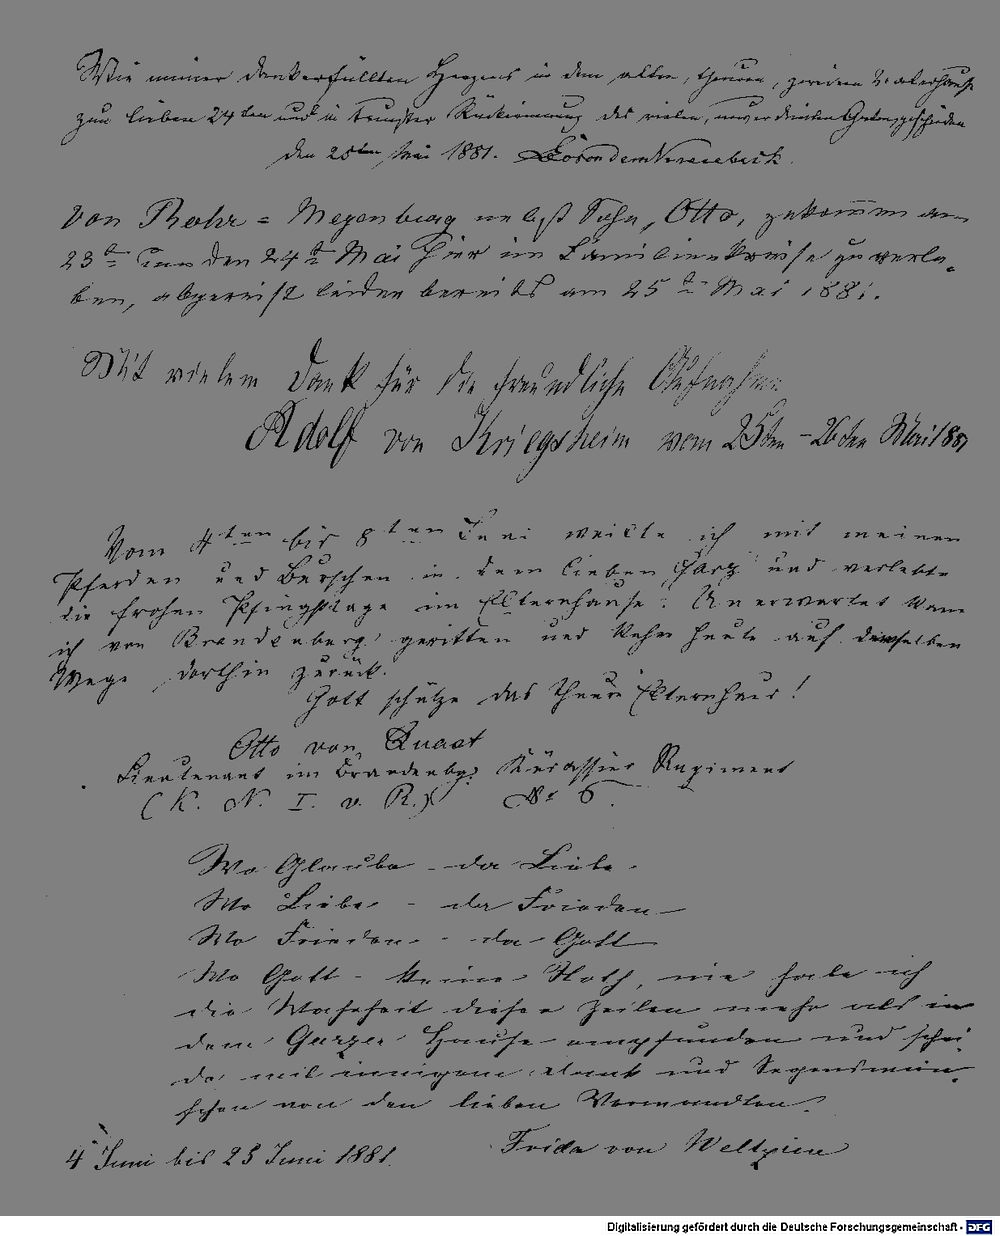 Wie immer dankerfüllten Herzens in dem alten, theuren, Vaterhause
zum lieben 24ten und in Rückerinnerung des vielen, Gutengeschieden
den 25ten Mai 1881.
von Rohr = Meyenburg nebst Sohn, Otto, gekommen am
23t um den 24t Mai hier im Familienkreise zu verle-
ben, abgereist leider bereits am 25t Mai 1881.
Mit vielem Dank für die freundliche Aufnahme
Adolf von Kriegsheim vom 25ten - 26ten Mai 1881
Vom 4ten bis 8ten Juni weilte ich mit meinen
Pferden und Burschen in dem lieben Garz und verlebte
die frohen Pfingsttage im Elternhause. Unerwartet kam
ich von Brandenburg geritten und kehre heute auf demselben
Wege dorthin zurück.
Gott schütze das theure Elternhaus!
Otto von Quast
Lieutenant im Brandenbg. Kürassier Regiment
(K. N. I. v. R.) No 6.
Wo Glaube - da Liebe
Wo Liebe - da Frieden
Wo Frieden - da Gott
Wo Gott - keine Noth, nie habe ich
die Wahrheit dieser Zeilen mehr als in
dem Garzer Hause empfunden und schei-
de mit innigem Dank und Segenswün-
schen von den lieben Verwandten.
4 Juni bis 23 Juni 1881. Frida von Weltzien
Digitalisierung gefördert durch die Deutsche Forschungsgemeinschaft - DFG